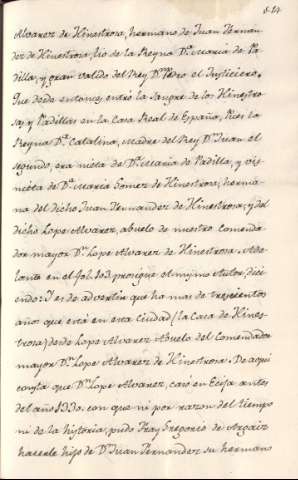 Alvarez de Hinestrosa, hermano de Juan Fernan-
dez de Hinestrosa, tio de la Reyna Dª. Maria de Pa-
dilla, y gran valido del Rey Dn. Pedro el Justiciero,
que desde entonces entró la sangre de los Hinestro-
sas, y Padillas en la Casa Real de España, Pues la
Reyna Dª. Catalina, Madre del Rey Dn. Juan el
segundo, era nieta de Dª. Maria de Padilla, y vis-
nieta de Dª. Maria Gomez de Hinestrosa; herma-
na del dicho Juan Fernandez de Hinestrosa, y del
dicho Lope Alvarez, abuelo de nuestro comenda-
dor mayor Dn. Lope Alvarez de Hinestrosa. Ade-
lante en el fol. 103. prosigue el mismo Autor, dici-
endo: Y es de advertir que ha mas de trescientos
años que está en esta Ciudad (la Casa de Hines-
trosa) desde Lope Alvarez Abuelo del Comendador
mayor Dn. Lope Alvarez de Hinestrosa. De aqui
consta que Dn. Lope Alvarez, casó en Ecija antes
del año 1330. con que ni por razon del tiempo
ni de la historia, pudo Fray Gregorio de Argaiz
hacerle hijo de Dn. Juan Fernandez su hermano